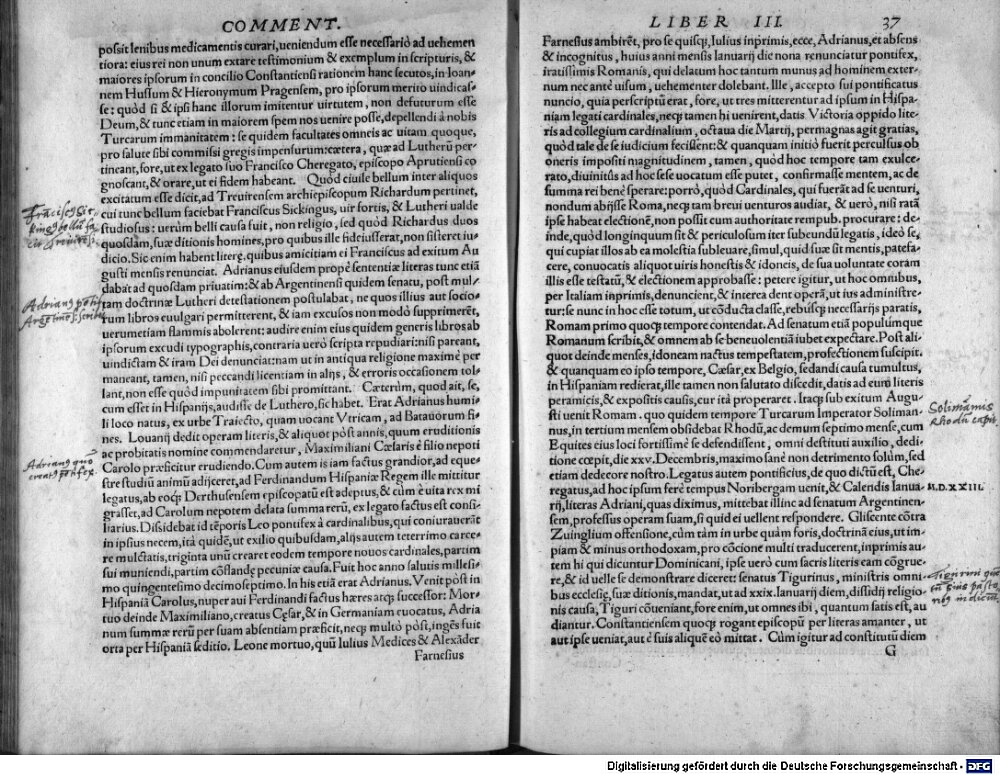 COMMENT.
possit lenibus medicamentis curari, ueniendum esse necessariò ad uehemen
tiora: eius rei non unum extare testimonium & exemplum in scripturis, &
maiores ipsorum in concilio Constantiensi rationem hanc secutos, in Ioan-
nem Hussum & Hieronymum Pragensem, pro ipsorum merito uindicas-
se: quòd si & ipsi hanc illorum imitentur uirtutem, non defuturum esse
Deum, & tunc etiam in maiorem spem nos uenire posse, depellendi à nobis
Turcarum immanitatem: se quidem facultates omneis ac uitam quoque,
pro salute sibi commissi gregis impensurum: cætera, quæ ad Lutherū per-
tineant, fore, ut ex legato suo Francisco Cheregato, episcopo Aprutiensi co
gnoscant, & orare, ut ei fidem habeant. Quòd ciuile bellum inter aliquos
excitatum esse dicit, ad Treuirensem archiepiscopum Richardum pertinet,
cui tunc bellum faciebat Franciscus Sickingus, uir fortis, & Lutheri ualde
studiosus: uerùm belli causa fuit, non religio, sed quòd Richardus duos
quosdam, suæ ditionis homines, pro quibus ille fideiusserat, non sisteret iu-
dicio. Sic enim habent literę, quibus amicitiam ei Franciscus ad exitum Au
gusti mensis renunciat. Adrianus eiusdem propè sententiæ literas tunc etiā
dabat ad quosdam priuatim: & ab Argentinensi quidem senatu, post mul-
tam doctrinæ Lutheri detestationem postulabat, ne quos illius aut socio-
rum libros euulgari permitterent, & iam excusos non modò supprimerēt,
uerumetiam flammis abolerent: audire enim eius quidem generis libros ab
ipsorum excudi typographis, contraria uerò scripta repudiari: nisi pareant,
uindictam & iram Dei denunciat: nam ut in antiqua religione maximè per
maneant, tamen, nisi peccandi licentiam in alijs, & erroris occasionem tol-
lant, non esse quòd impunitatem sibi promittant. Cæterùm, quod ait, se,
cum esset in Hispanijs, audisse de Luthero, sic habet. Erat Adrianus humi-
li loco natus, ex urbe Traiecto, quam uocant Vtricam, ad Batauorum fi-
nes. Louanij dedit operam literis, & aliquot pòst annis, quum eruditionis
ac probitatis nomine commendaretur, Maximiliani Cæsaris è filio nepoti
Carolo præficitur erudiendo. Cum autem is iam factus grandior, ad eque-
stre studiū animū adijceret, ad Ferdinandum Hispaniæ Regem ille mittitur
legatus, ab eoq; Derthusensem episcopatū est adeptus, & cùm è uita rex mi
grasset, ad Carolum nepotem delata summa rerū, ex legato factus est consi-
liarius. Dissidebat id tēporis Leo pontifex à cardinalibus, qui coniurauerāt
in ipsius necem, ità quidē, ut exilio quibusdam, alijs autem teterrimo carce-
re mulctatis, triginta unū crearet eodem tempore nouos cardinales, partim
sui muniendi, partim cōflandę pecuniæ causa. Fuit hoc anno salutis millesi-
mo quingentesimo decimoseptimo. In his etiā erat Adrianus. Venit pòst in
Hispaniā Carolus, nuper aui Ferdinandi factus hæres atq; successor: Mor-
tuo deinde Maximiliano, creatus Cęsar, & in Germaniam euocatus, Adria
num summæ rerū per suam absentiam præficit, neq; multò pòst, ingēs fuit
orta per Hispaniā seditio. Leone mortuo, quū Iulius Medices & Alexāder
Farnesius
LIBER III. 37
Farnesius ambirēt, pro se quisq;, Iulius inprimis, ecce, Adrianus, et absens
& incognitus, huius anni mensis Ianuarij die nona renunciatur pontifex,
iratissimis Romanis, qui delatum hoc tantum munus ad hominem exter-
num nec antè uisum, uehementer dolebant. Ille, accepto sui pontificatus
nuncio, quia perscriptū erat, fore, ut tres mitterentur ad ipsum in Hispa-
niam legati cardinales, neq; tamen hi uenirent, datis Victoria oppido lite-
ris ad collegium cardinalium, octaua die Martij, permagnas agit gratias,
quòd tale de se iudicium fecissent: & quanquam initiò fuerit perculsus ob
oneris impositi magnitudinem, tamen, quòd hoc tempore tam exulce-
rato, diuinitùs ad hoc sese uocatum esse putet, confirmasse mentem, ac de
summa rei benè sperare: porrò, quòd Cardinales, qui fuerāt ad se uenturi,
nondum abijsse Roma, neq; tam breui uenturos audiat, & uerò, nisi ratā
ipse habeat electionē, non possit cum authoritate rempub. procurare: de-
inde, quòd longinquum sit & periculosum iter subeundū legatis, ideò se,
qui cupiat illos ab ea molestia subleuare, simul, quid suæ sit mentis, patefa-
cere, conuocatis aliquot uiris honestis & idoneis, de sua uoluntate coràm
illis esse testatū, & electionem approbasse: petere igitur, ut hoc omnibus,
per Italiam inprimis, denuncient, & interea dent operā, ut ius administre-
tur: se nunc in hoc esse totum, ut cōducta classe, rebusq; necessarijs paratis,
Romam primo quoq; tempore contendat. Ad senatum etiā populumque
Romanum scribit, & omnem ab se beneuolentiā iubet expectare. Post ali-
quot deinde menses, idoneam nactus tempestatem, profectionem suscipit.
& quanquam eo ipso tempore, Cæsar, ex Belgio, sedandi causa tumultus,
in Hispaniam redierat, ille tamen non salutato discedit, datis ad eum literis
peramicis, & expositis causis, cur ità properaret. Itaq; sub exitum Augu-
sti uenit Romam. quo quidem tempore Turcarum Imperator Soliman-
nus, in tertium mensem obsidebat Rhodū, ac demum septimo mense, cum
Equites eius loci fortissimè se defendissent, omni destituti auxilio, dedi-
tione cœpit, die xxv. Decembris, maximo sanè non detrimento solùm, sed
etiam dedecore nostro. Legatus autem pontificius, de quo dictū est, Che-
regatus, ad hoc ipsum ferè tempus Noribergam uenit, & Calendis Ianua-
rij, literas Adriani, quas diximus, mittebat illinc ad senatum Argentinen-
sem, professus operam suam, si quid ei uellent respondere. Gliscente cōtra
Zuinglium offensione, cùm tàm in urbe quàm foris, doctrinā eius, ut im-
piam & minus orthodoxam, pro cōcione multi traducerent, inprimis au-
tem hi qui dicuntur Dominicani, ipse uerò cum sacris literis eam cōgrue-
re, & id uelle se demonstrare diceret: senatus Tigurinus, ministris omni-
bus ecclesię, suæ ditionis, mandat, ut ad xxix. Ianuarij diem, dissidij religio-
nis causa, Tiguri cōueniant, fore enim, ut omnes ibi, quantum satis est, au
diantur. Constantiensem quoq; rogant episcopū per literas amanter, ut
aut ipse ueniat, aut è suis aliquē eò mittat. Cùm igitur ad constitutū diem
G
Solimannus
Rhodū capit.
M.D.XXIII.
Digitalisierung gefördert durch die Deutsche Forschungsgemeinschaft - DFG